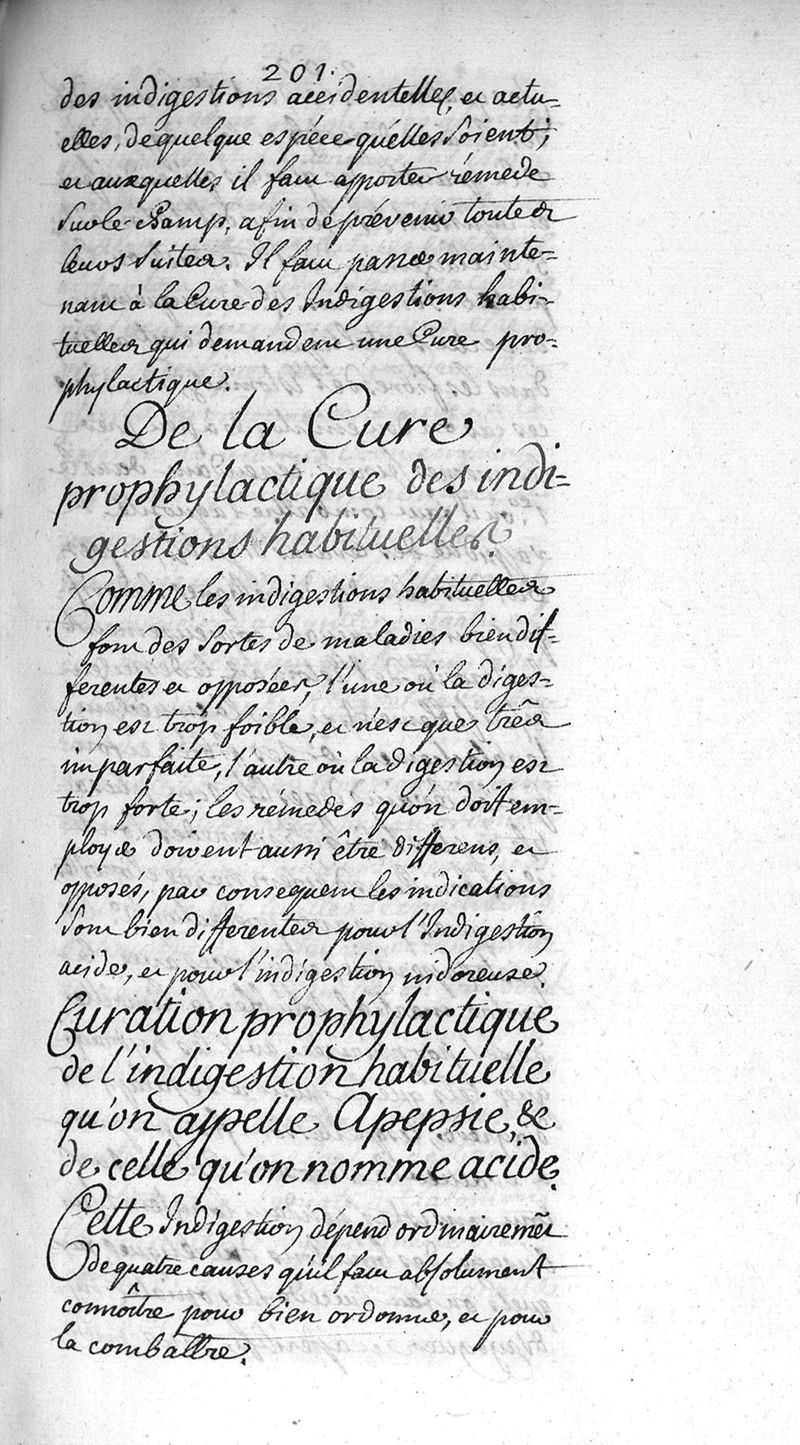 201.
des indigestions accidentelles, et actu-
elles, de quelque espéce qu'elles soient;
et auxquelles il faut apporter rémede
sur le champ, afin de prévenir toutes
leurs suites. Il faut passer mainte=
nant à la Cure des Indigestions habi-
tuelles qui demandent une Cure pro=
phylactique.
De la Cure
prophylactique des indi=
gestions habituelles.
Comme les indigestions habituelles
sont des sortes de maladies bien dif-
ferentes et opposées, l'une où la diges=
tion est trop foible, et n'est que très
imparfaite, l'autre où la digestion est
trop forte; les rémedes qu'on doit em=
ployer doivent aussi être differens, et
opposés, par consequent les indications
sont bien differentes pour l'Indigestion
acide, et pour l'indigestion nidoreuse.
Curation prophylactique
de l'indigestion habituelle
qu'on appelle Apepsie, &
de celle qu'on nomme acide.
Cette Indigestion dépend ordinairemẽt
de quatre causes qu'il faut absolument
connoître pour bien ordonner, et pour
la combattre.